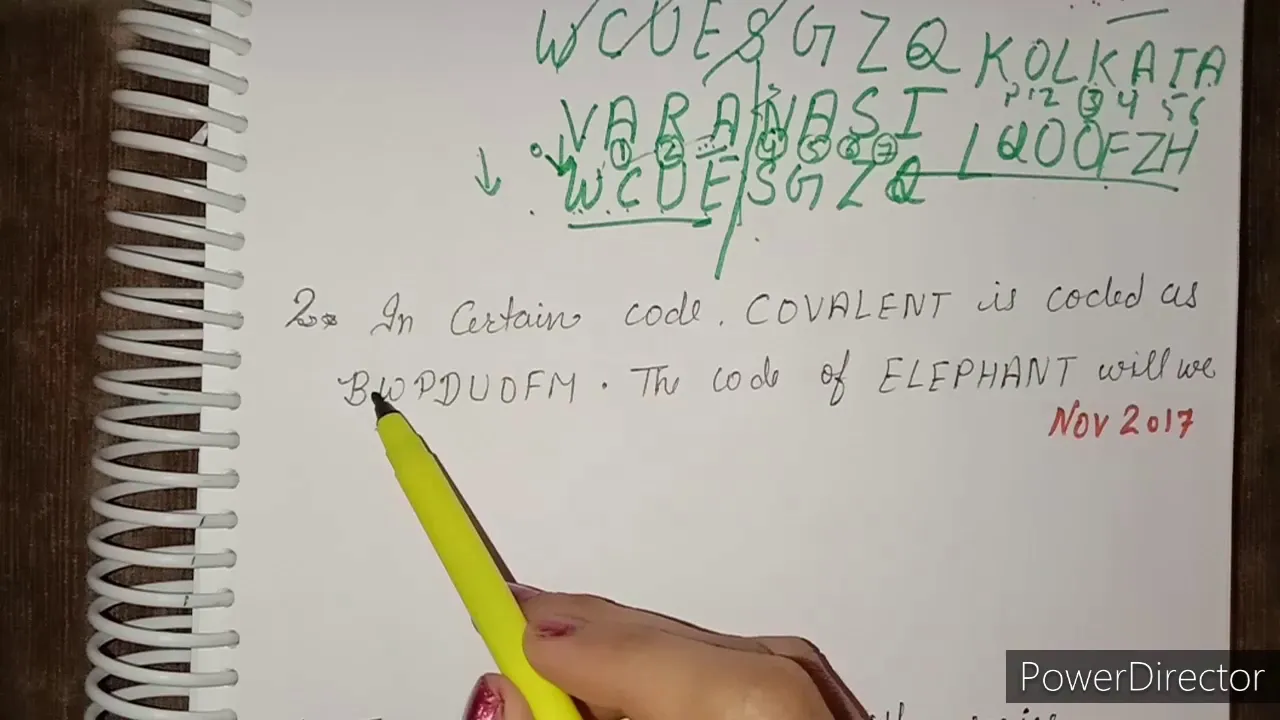 WCUESGZQ KOLKATA
VARANASI 12 3 4 5 6
0 1 2 3 4 5 6 7 LQOOFZH
WCUESGZQ
2. In Certain code, COVALENT is coded as
BWPDUOFM. The code of ELEPHANT will we
Nov 2017
PowerDirector